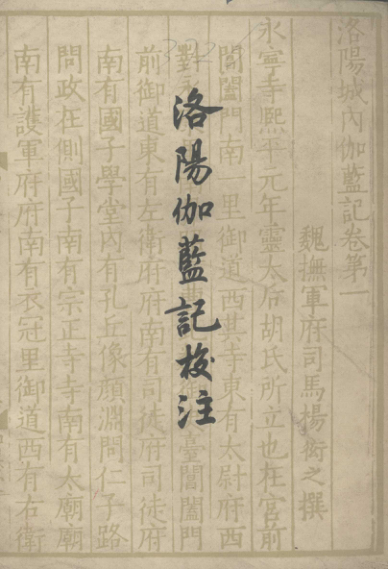 洛陽伽藍記校注
洛陽城 伽藍記卷第一
魏撫軍府司馬楊衒之撰
永寧寺熙平元年靈太后胡氏所立也在宮前
閶闔門南一里御道西其寺東有太尉府西
對 臺閶闔門
前御道東有左衛府府南有司徒府司徒府
南有國子學堂內有孔丘像顏淵問仁子路
問政在側國子南有宗正寺寺南有太廟廟
南有護軍府府南有衣冠里御道西有右衛